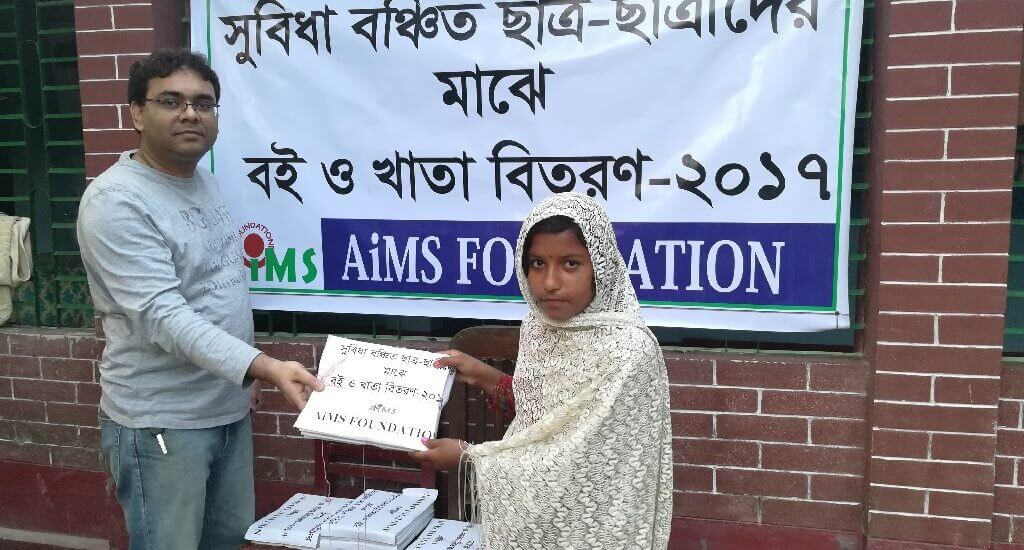 সুবিধা বঞ্চিত ছাত্র-ছাত্রীদের
মাঝে
বই ও খাতা বিতরণ-২০১৭
FOUNDATION
AiMS
AiMS FO ATION
সুবিধা বঞ্চিত ছাত্র-ছা
মাঝে
বই ও খাতা বিতরণ-২০১
AiMS
AiMS FOUNDATION